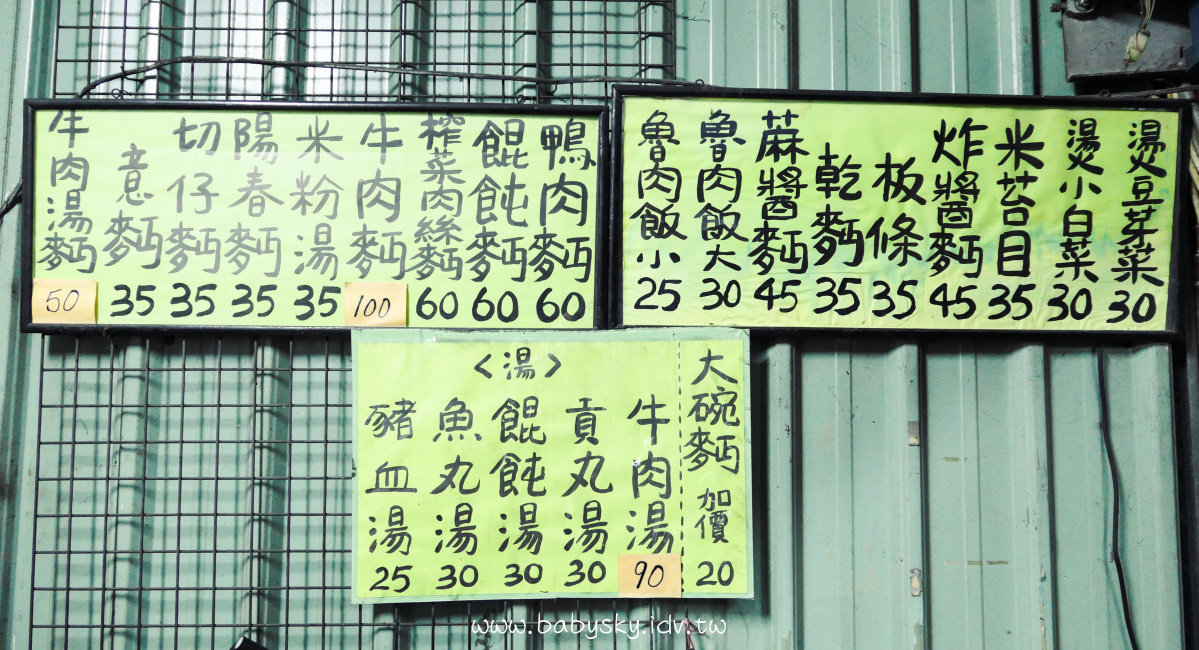 鴨肉麵 60
餛飩麵 60
榨菜肉絲麵 60
牛肉麵 100
米粉湯 35
陽春麵 35
切仔麵 35
意麵 35
牛肉湯麵 50
燙豆芽菜 30
燙小白菜 30
米苔目 35
炸醬麵 45
板條 35
乾麵 35
蔴醬麵 45
魯肉飯大 30
魯肉飯小 25
<湯>
大碗麵 加價 20
牛肉湯 90
貢丸湯 30
餛飩湯 30
魚丸湯 30
豬血湯 25
www.babysky.idv.tw